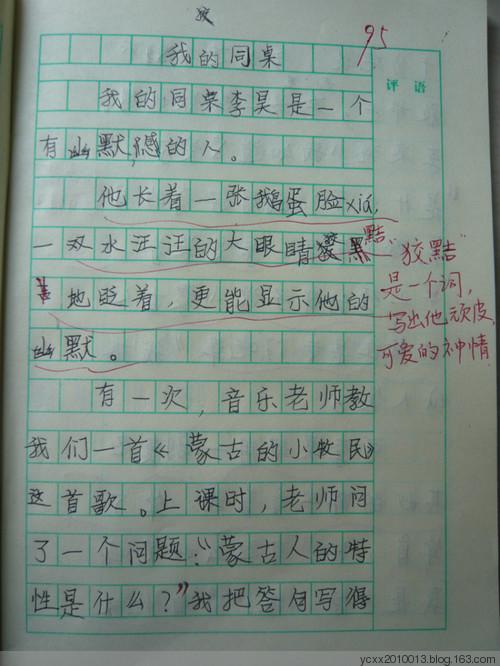 95
我的同桌
评语
我的同桌李昊是一个
有幽默感的人。
他长着一张鹅蛋脸xia,
一双水汪汪的大眼睛狡黠
地眨着，更能显示他的
幽默。
狡黠"
是一个词，
写出他顽皮
可爱的神情
有一次，音乐老师教
我们一首《蒙古的小牧民》
这首歌。上课时，老师问
了一个问题："蒙古人的特
性是什么？"我把答句写得
ycxx2010013.blog.163.com